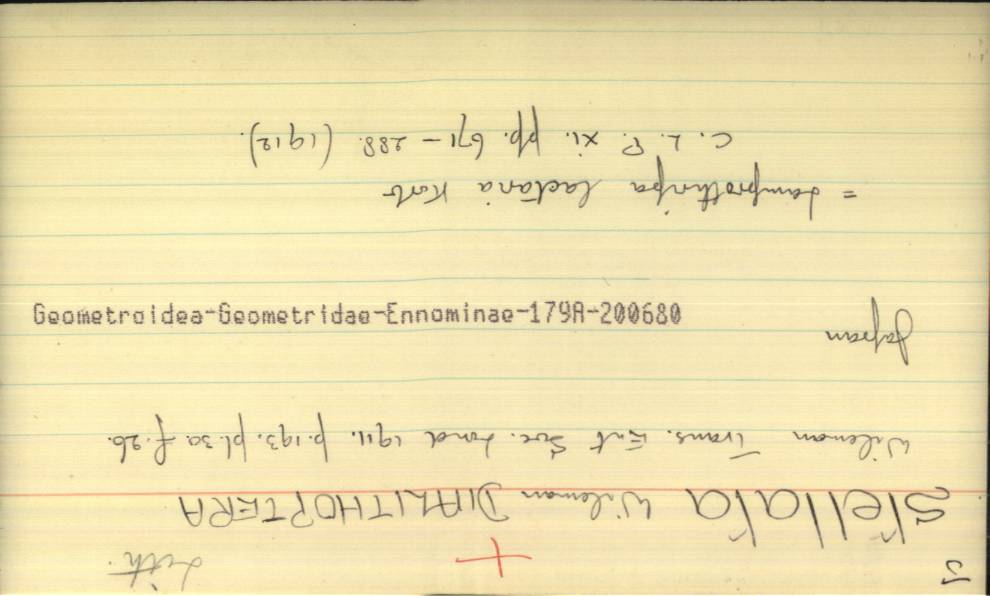 Lith.
stellata Wileman DIALITHOPTERA
Wileman Trans. Ent. Soc. Lond 1911. p. 193. pl. 30 f. 26.
Japan
Geometroidea-Geometridae-Ennominae-179A-200680
= Lamprothripa lactaria
C. L. P. xi. pp. 671 - 288. (1912).